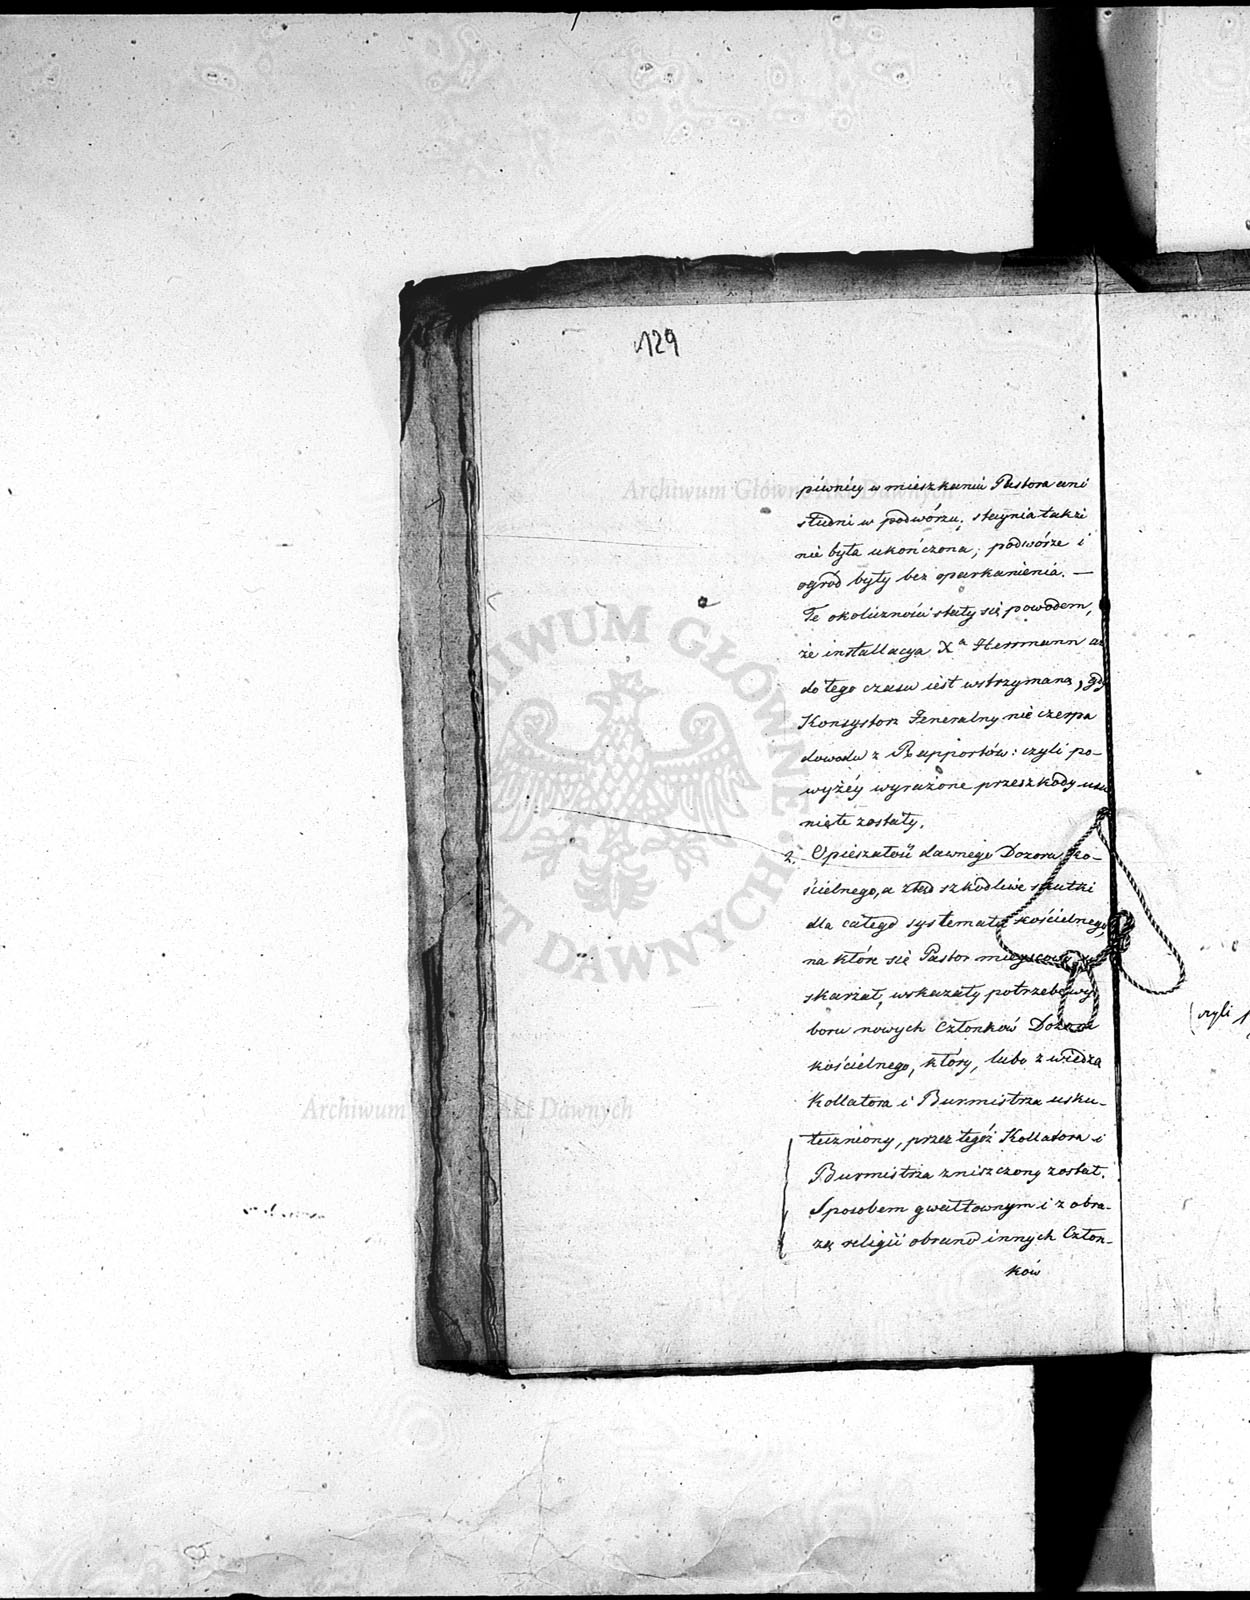 129
piwnicy w mieszkaniu Pastora ani
studni w podwórzu; staynia także
nie była ukończona; podwórze i
ogród były bez oparkanienia. —
Te okoliczności stały się powodem,
że installacya Xa Herrmann aż
do tego czasu iest wstrzymaną, gdy
Konsystorz Generalny nie czerpa
dowodu z Rapportów: czyli po-
wyżéy wyrażone przeszkody usu
nięte zostały.
2. Opieszałość dawnego Dozoru ko-
ścielnego, a ztąd szkodliwe skutki
dla całego systematu kościelnego,
na które się Pastor mieyscowy
skarżał, wskazały potrzebę wy
boru nowych Członków Dozoru
kościelnego, który, lubo z wiedzą
Kollatora i Burmistrza usku-
teczniony, przez tegóż Kollatora i
Burmistrza zniszczony został.
Sposobem gwałtownym i z obra-
zą religii obrano innych Człon-
ków
(czyli
Archiwum Główne Akt Dawnych
Archiwum Główne Akt Dawnych
ARCHIWUM GŁÓWNE AKT DAWNYCH